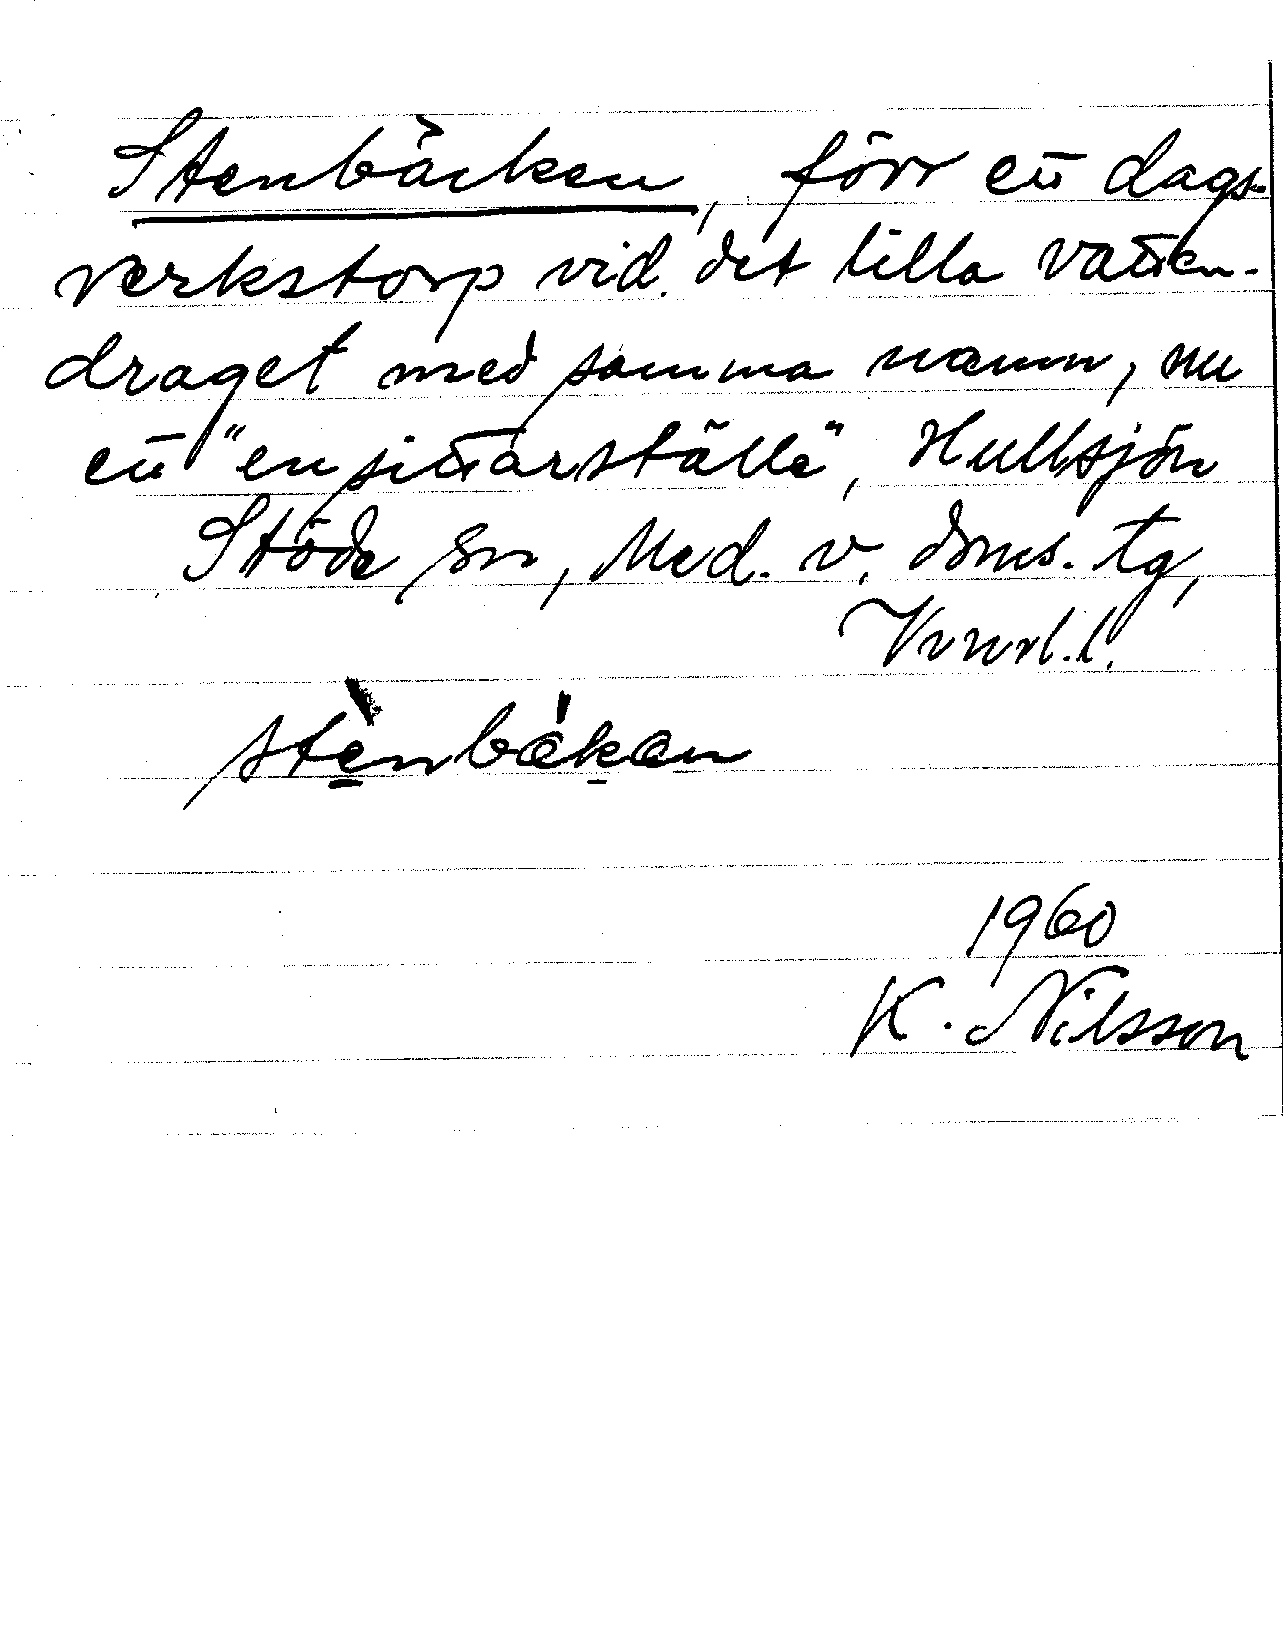 Stenbäcken, förr ett dags-
verkstorp vid det lilla vatten-
draget med samma namn, nu
ett "ensittarställe", Hullsjön
Stöde sn, Med. v. doms. tg,
Vnrl. l.
stènbákan
1960
K. Nilsson